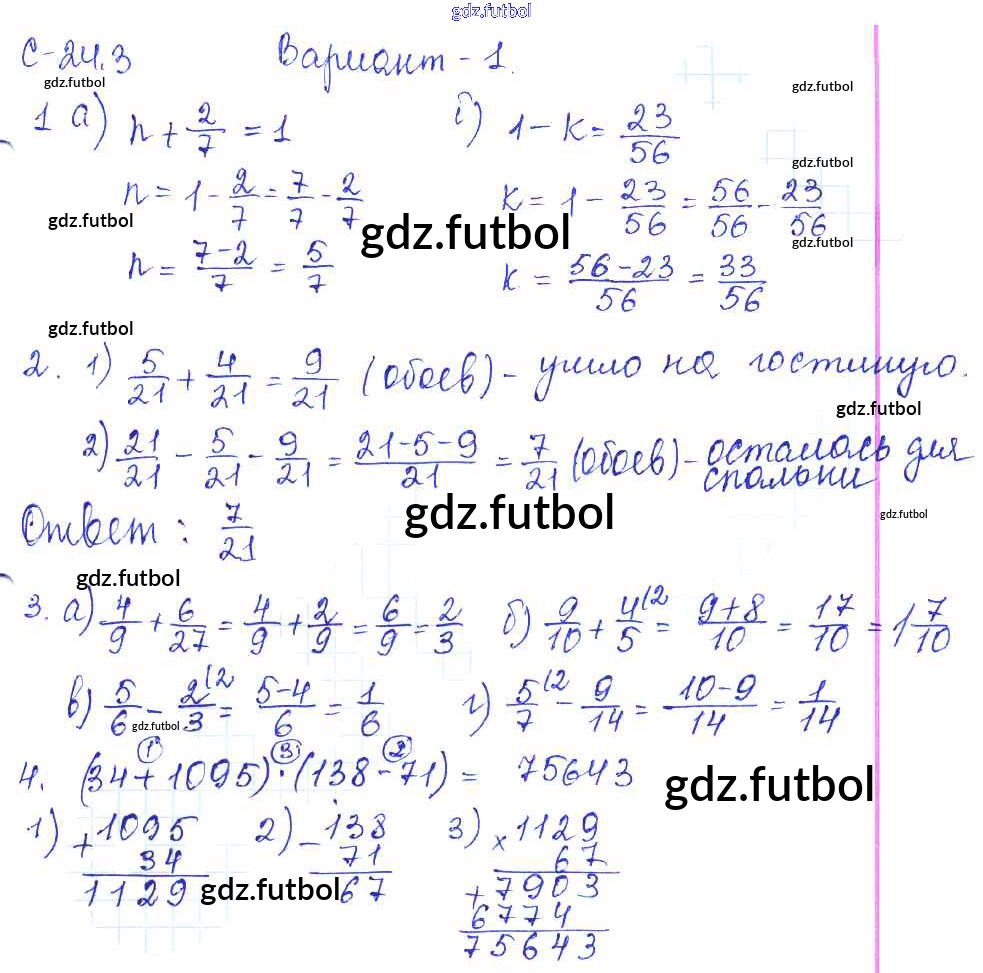 gdz.futbol
С-24.3 Вариант - 1.
gdz.futbol gdz.futbol
1 а) n + 2/7 = 1 б) 1 - к = 23/56
gdz.futbol
n = 1 - 2/7 = 7/7 - 2/7 к = 1 - 23/56 = 56/56 - 23/56
gdz.futbol gdz.futbol gdz.futbol
n = 7-2/7 = 5/7 к = 56-23/56 = 33/56
gdz.futbol
2. 1) 5/21 + 4/21 = 9/21 (обоев) - ушло на гостиную.
gdz.futbol
2) 21/21 - 5/21 - 9/21 = 21-5-9/21 = 7/21 (обоев) - осталось для спальни
gdz.futbol gdz.futbol
Ответ: 7/21
gdz.futbol
3. а) 4/9 + 6/27 = 4/9 + 2/9 = 6/9 = 2/3 б) 9/10 + 4/5 (2 = 9+8/10 = 17/10 = 1 7/10
в) 5/6 - 2/3 (2 = 5-4/6 = 1/6 г) 5/7 (2 - 9/14 = 10-9/14 = 1/14
gdz.futbol
1 3 2
4. (34 + 1095) · (138 - 71) = 75643
gdz.futbol
1) + 1095 2) - 138 3) × 1129
34 71 67
1129 gdz.futbol 67 + 7903
6774
75643